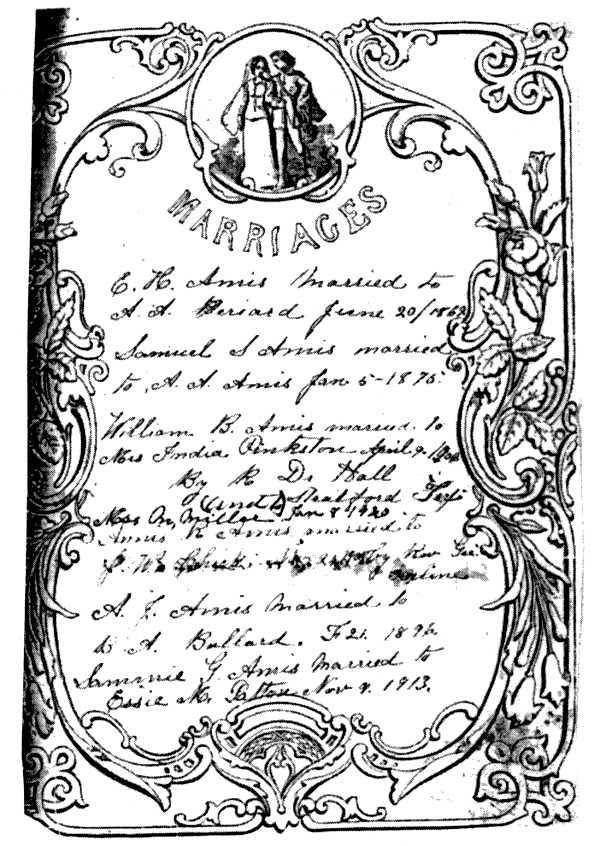 MARRIAGES
E. H. Amis Married to
A. A. Beriard June 20/1862
Samuel S Amis married
to A. A. Amis Jan 5-1875.
William B. Amis married to
Mrs India Pinkston April 9
By R D. Hall
(and)
Mrs Miller Jan 8 1920
Annie R Amis married to
J. W. by Rev
A. J. Amis Married to
A. Bullard. F 21. 1896
Sammie G. Amis Married to
Essie M. Patton Nov 9. 1913.